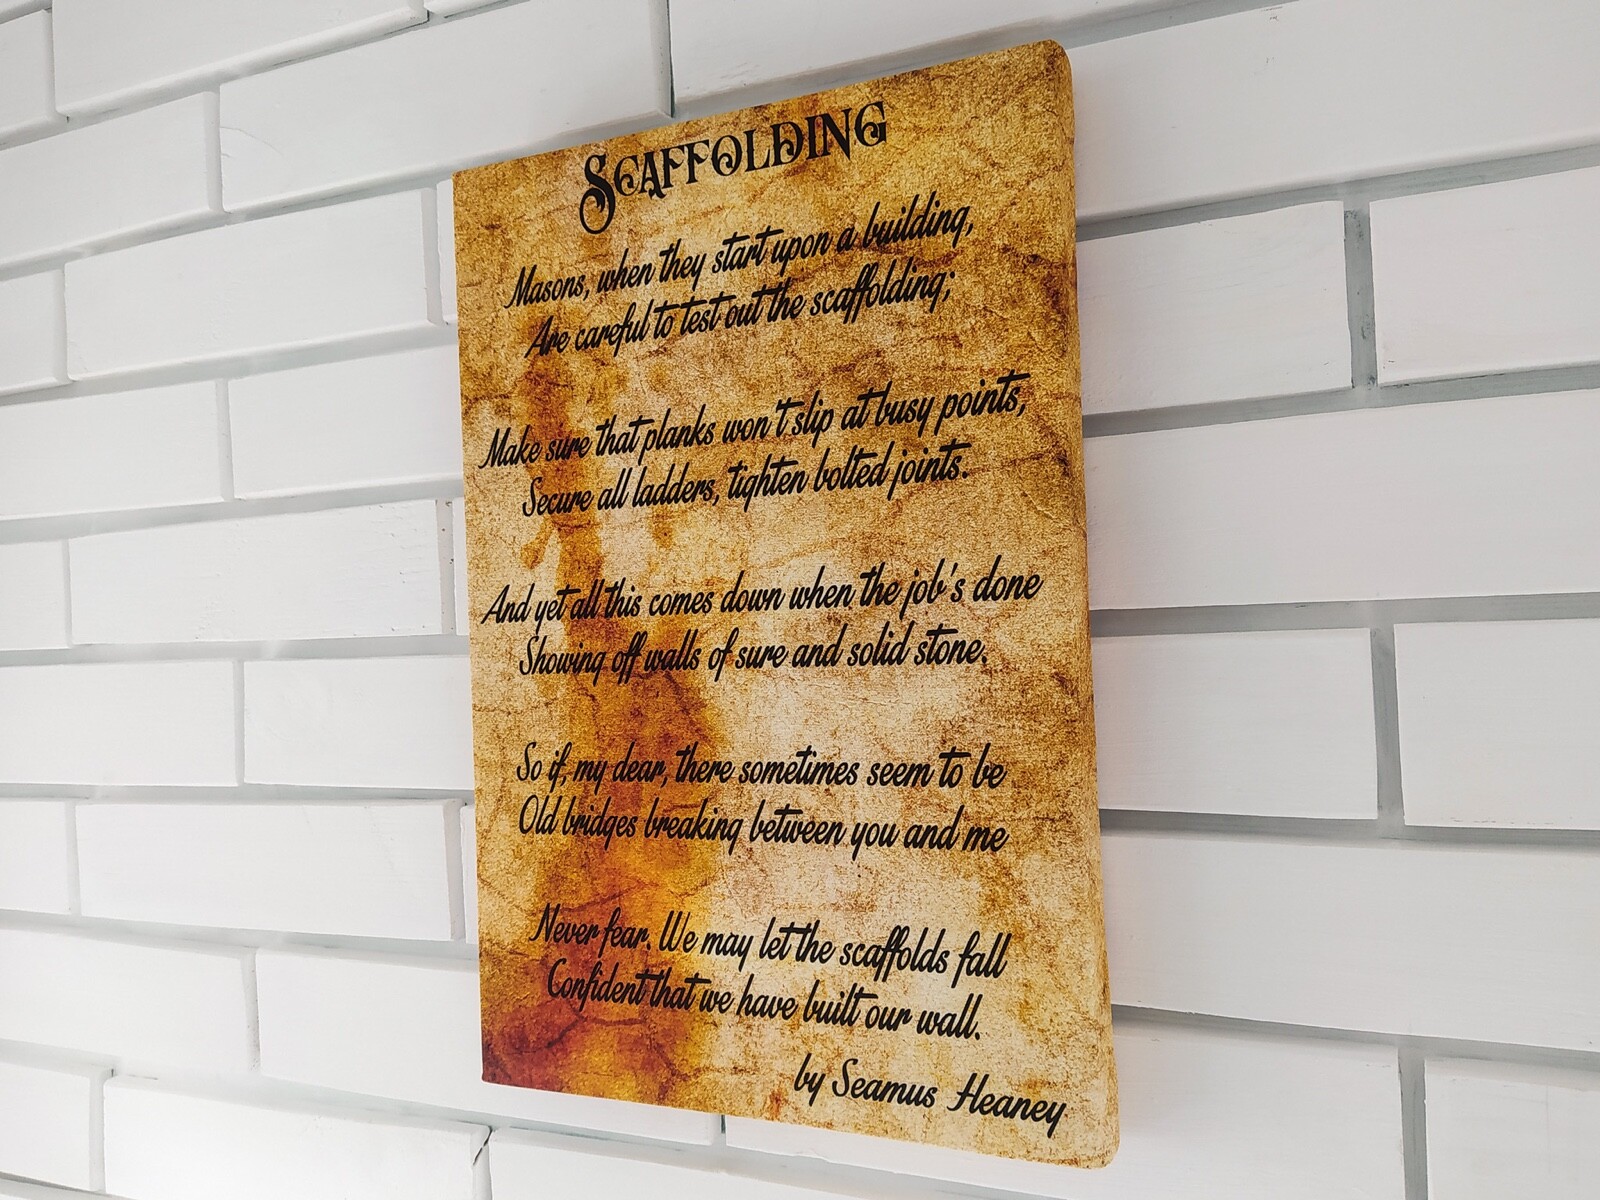 SCAFFOLDING
Masons, when they start upon a building,
Are careful to test out the scaffolding;
Make sure that planks won't slip at busy points,
Secure all ladders, tighten bolted joints.
And yet all this comes down when the job's done
Showing off walls of sure and solid stone.
So if, my dear, there sometimes seem to be
Old bridges breaking between you and me
Never fear. We may let the scaffolds fall
Confident that we have built our wall.
by Seamus Heaney